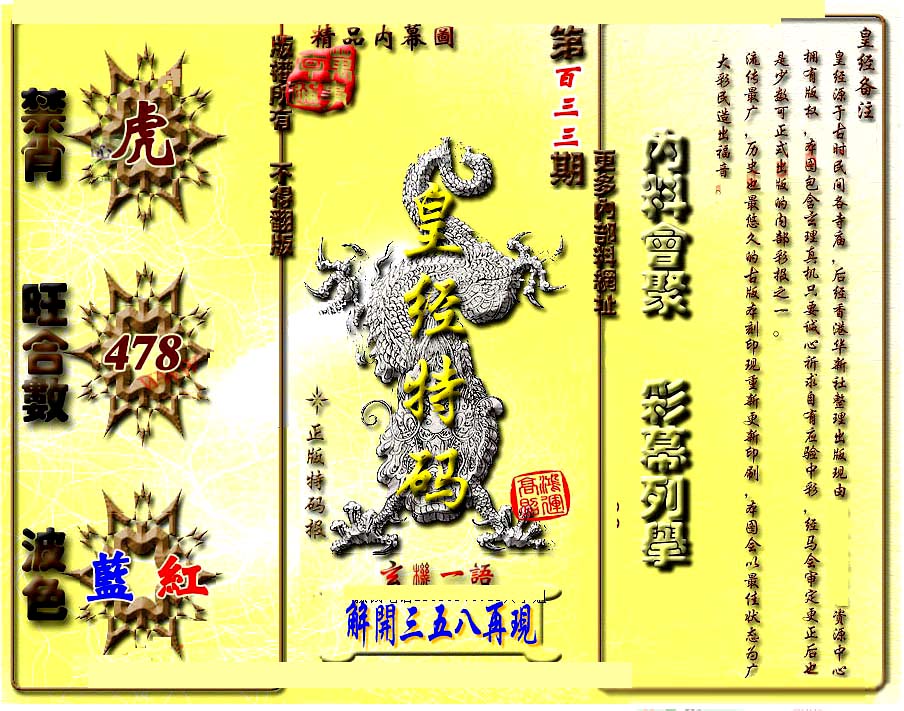 皇经备注
皇经源于古时民间各寺庙，后经香港华新社整理出版现由 资源中心
拥有版权，本图包含玄理真机只要诚心祈求自有应验中彩，经马会审定更正后也
是少数可正式出版的内部彩报之一。
流传最广，历史也最悠久的古版本刻印现重新更新印刷，本图会以最佳状态为广
大彩民造出福音
内料會聚 彩幕列舉
更多内部料網址
第百三三期
精品内幕圖
皇经特码
正版特码报
鸿運高照
玄機一語
解開三五八再現
版權所有 不得翻版
禁肖
虎
旺合數
478
波色
藍 紅